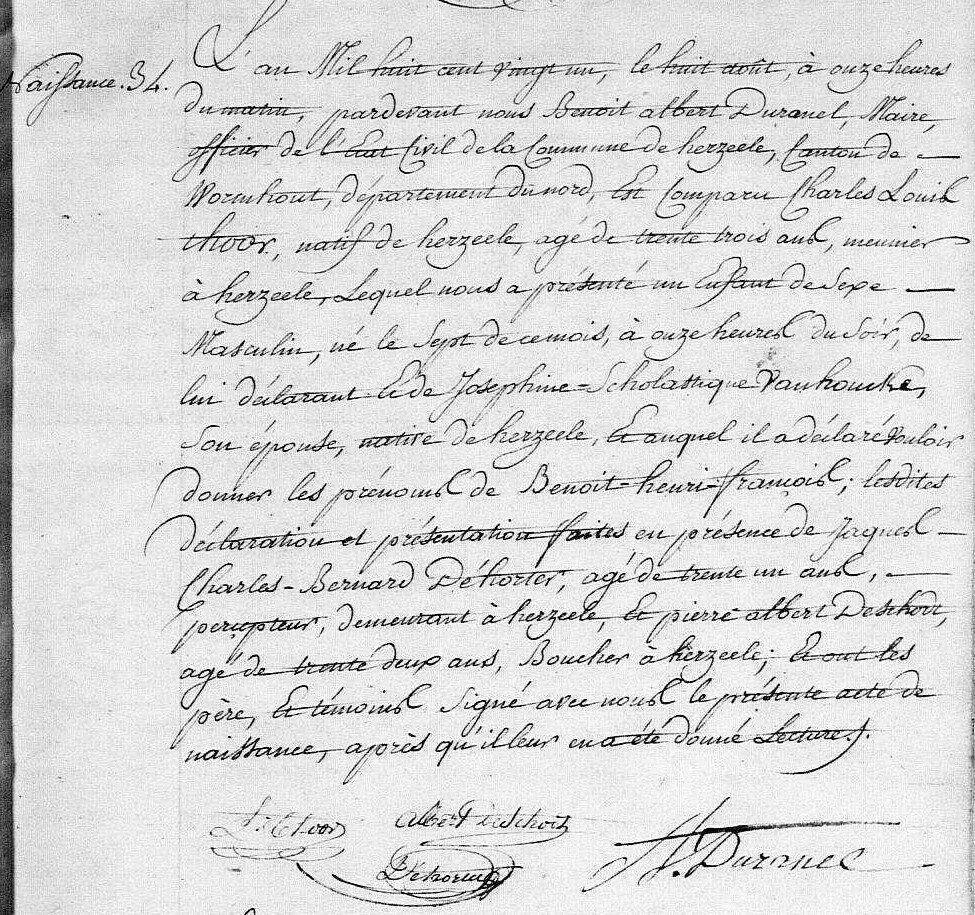 Naissance. 34.
L'an Mil huit cent vingt un, le huit août, à onze heures
du matin, pardevant nous Benoit albert Duranel, Maire,
officier de l'Etat Civil de la Commune de herzeele, Canton de
Wormhout, département du nord, Est Comparu Charles Louis
thoor, natif de herzeele, agé de trente trois ans, meunier
à herzeele, Lequel nous a présenté un Enfant de Sexe
Masculin, né le Sept de ce mois, à onze heures du Soir, de
lui déclarant et de Josephine=Scholastique Vanhoucke,
Son épouse, native de herzeele, Et auquel il a déclaré Vouloir
donner les prénoms de Benoit=henri=françois; lesdites
déclaration et présentation faites en présence de Jaques
Charles-Bernard Déhorter, agé de trente un ans,
percepteur, demeurant à herzeele, Et pierre albert Deschodt,
agé de trente deux ans, Boucher à herzeele; Et ont les
père, Et témoins Signé avec nous le présente acte de
naissance, après qu'il leur en a été donné Lecture./.
Thoor Albert Deschodt
Dehorter Duranel